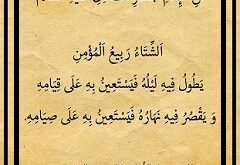 اَلشِّتَاءُ رَبِيعُ اَلْمُؤْمِنِ
يَطُولُ فِيهِ لَيْلُهُ فَيَسْتَعِينُ بِهِ عَلَى قِيَامِهِ
وَ يَقْصُرُ فِيهِ نَهَارُهُ فَيَسْتَعِينُ بِهِ عَلَى صِيَامِهِ.